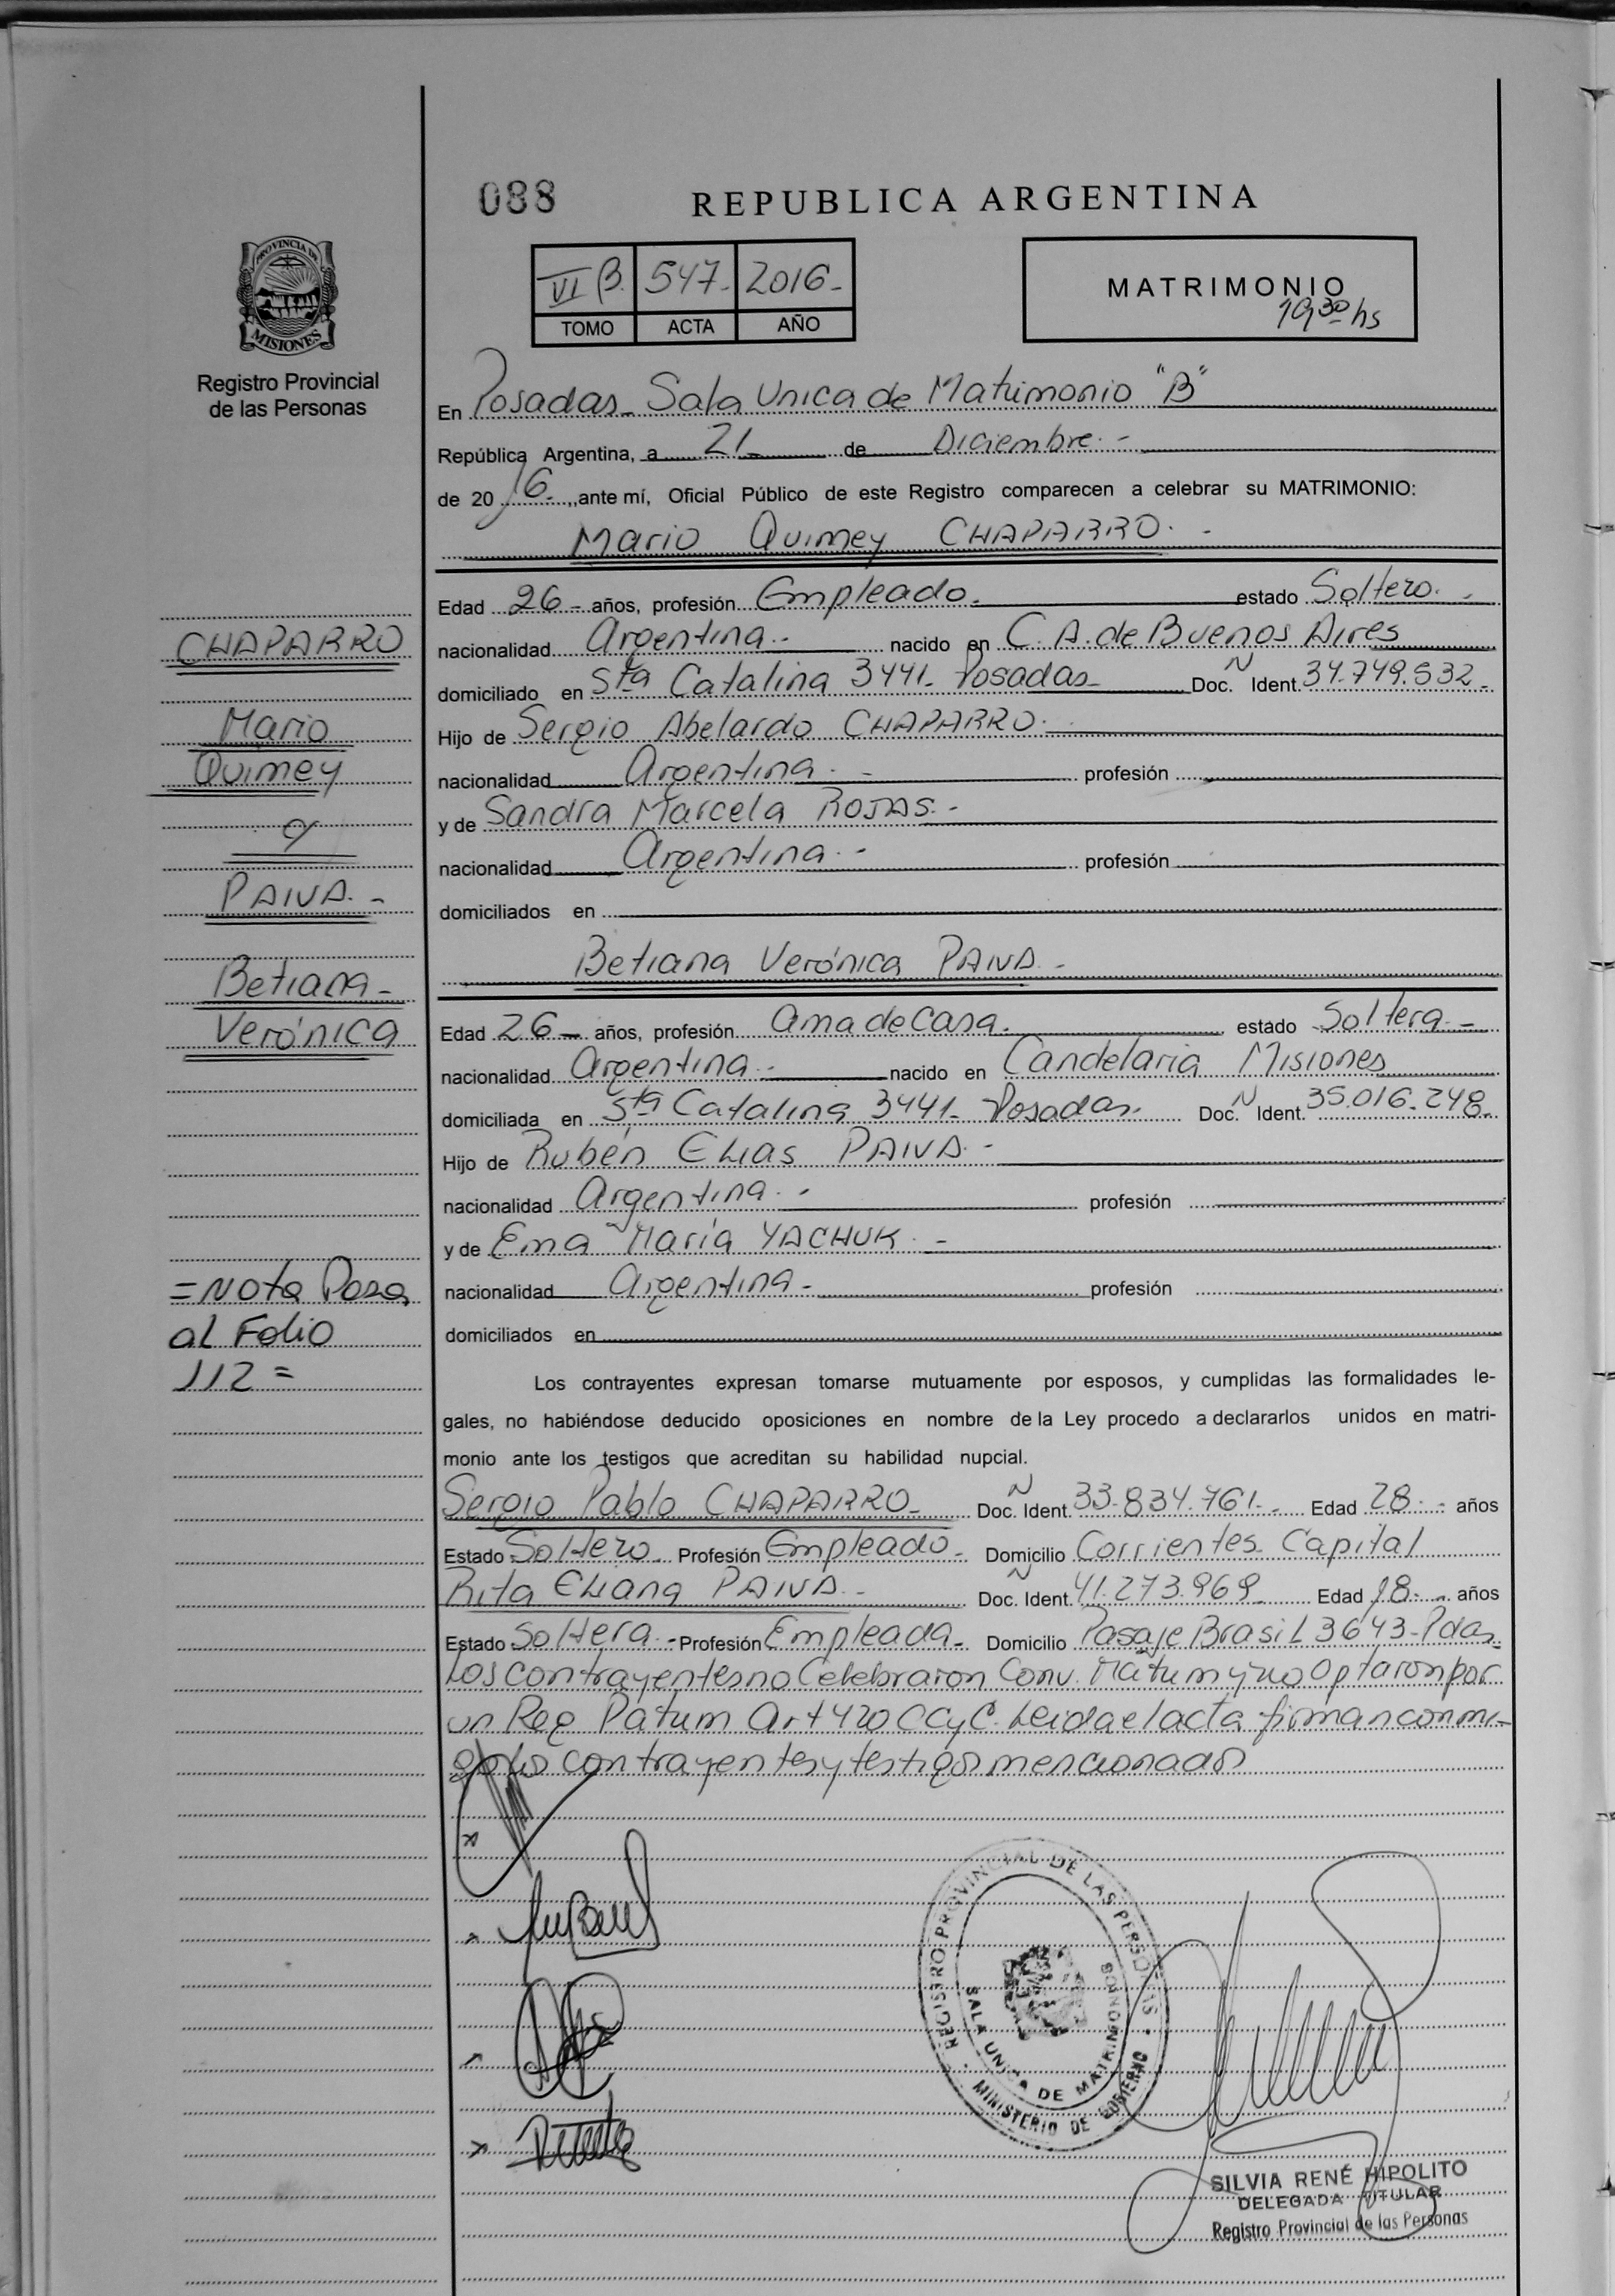 088
REPUBLICA ARGENTINA
PROVINCIA DE
MISIONES
Registro Provincial
de las Personas
VI B. 547- 2016-
TOMO ACTA AÑO
MATRIMONIO
19,30 hs
En Posadas- Sala Unica de Matrimonio "B"
República Argentina, a 21 de Diciembre.-
de 2016.,ante mí, Oficial Público de este Registro comparecen a celebrar su MATRIMONIO:
Mario Quimey CHAPARRO.-
Edad 26- años, profesión Empleado. estado Soltero.-
nacionalidad Argentina.- nacido en C. A. de Buenos Aires
domiciliado en Sta Catalina 3441- Posadas- Doc. N Ident. 34.749.532-
Hijo de Sergio Abelardo CHAPARRO.
nacionalidad Argentina.- profesión
y de Sandra Marcela ROJAS.-
nacionalidad Argentina.- profesión
domiciliados en
Betiana Verónica PAIVA.-
Edad 26- años, profesión ama de Casa. estado Soltera-
nacionalidad Argentina.- nacido en Candelaria Misiones
domiciliada en Sta Catalina 3441- Posadas. Doc. N Ident. 35.016.248.
Hijo de Rubén Elias PAIVA.-
nacionalidad Argentina.- profesión
y de Ema María YACHUK.-
nacionalidad Argentina- profesión
domiciliados en
CHAPARRO
Mario
Quimey
y
PAIVA.-
Betiana-
Verónica
=Nota Pasa
al Folio
112=
Los contrayentes expresan tomarse mutuamente por esposos, y cumplidas las formalidades le-
gales, no habiéndose deducido oposiciones en nombre de la Ley procedo a declararlos unidos en matri-
monio ante los testigos que acreditan su habilidad nupcial.
Sergio Pablo CHAPARRO- Doc. N Ident. 33.834.761.- Edad 28.- años
Estado Soltero. Profesión Empleado- Domicilio Corrientes Capital
Rita Eliana PAIVA.- Doc. N Ident. 41.273.969- Edad 18.- años
Estado Soltera.- Profesión Empleada- Domicilio Pasaje Brasil 3643-Pdas-
Los contrayentes no Celebraron Conv. Matrim y no Optaron por
un Reg Patrim Art 420 CCyC. Leida el acta firman conmi-
go los contrayentes y testigos mencionados
REGISTRO PROVINCIAL DE LAS PERSONAS
SALA UNICA DE MATRIMONIOS
MINISTERIO DE GOBIERNO
SILVIA RENÉ HIPOLITO
DELEGADA TITULAR
Registro Provincial de las Personas